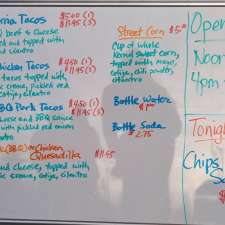 Tacos $5.00 (1)
$11.95 (3)
Beef & Cheese
and topped with
Cilantro
Chicken Tacos $4.50 (1)
$11.95 (3)
tacos topped with
crema, pickled red
cotija, cilantro
BBQ Pork Tacos $4.50 (1)
$11.95 (3)
cheese and BBQ sauce
with pickled red onion
(BBQ) or Chicken
Quesadilla $11.95
and cheese, topped with
crema, cotija, cilantro
Street Corn $5
Cup of whole
kernel sweet corn,
topped with mayo,
cotija, chili powder,
cilantro
Bottle Water
Bottle Soda
2.75
Open
Noon
4pm
Tonight
Chips